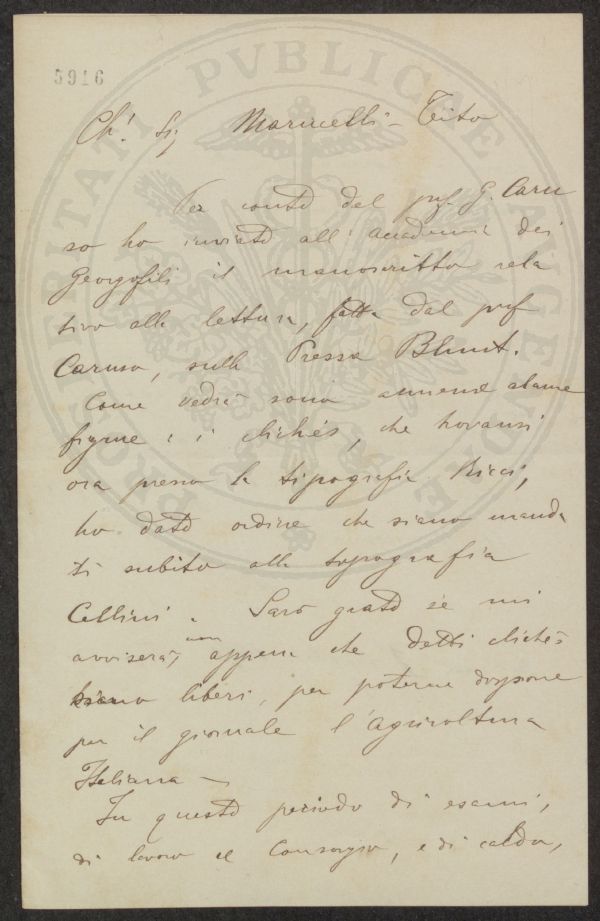 5916
PROSPERITATI PVBLICAE AVGENDAE
Ch.º Sig Marucelli - Tito
Per conto del prof. G. Caru
so ho inviato all' accademia dei
Georgofili il manoscritto rela
tivo alla lettura, fatta dal prof
Caruso, sulla Pressa Blunt.
Come vedrà sono annesse alcune
figure i clichés, che trovansi
ora presso la tipografia Ricci,
ho dato ordine che siano manda
ti subito alla tipografia
Cellini. Sarò grato se mi
avviserà, appena che detti clichés
siano liberi, per poterne disporre
per il giornale l'Agricoltura
Italiana —
In questo periodo di esami,
di lavoro al Consorzio, e di caldo,